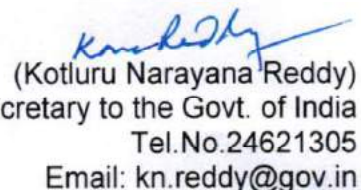 (Kotluru Narayana Reddy)
cretary to the Govt. of India
Tel.No.24621305
Email: kn.reddy@gov.in